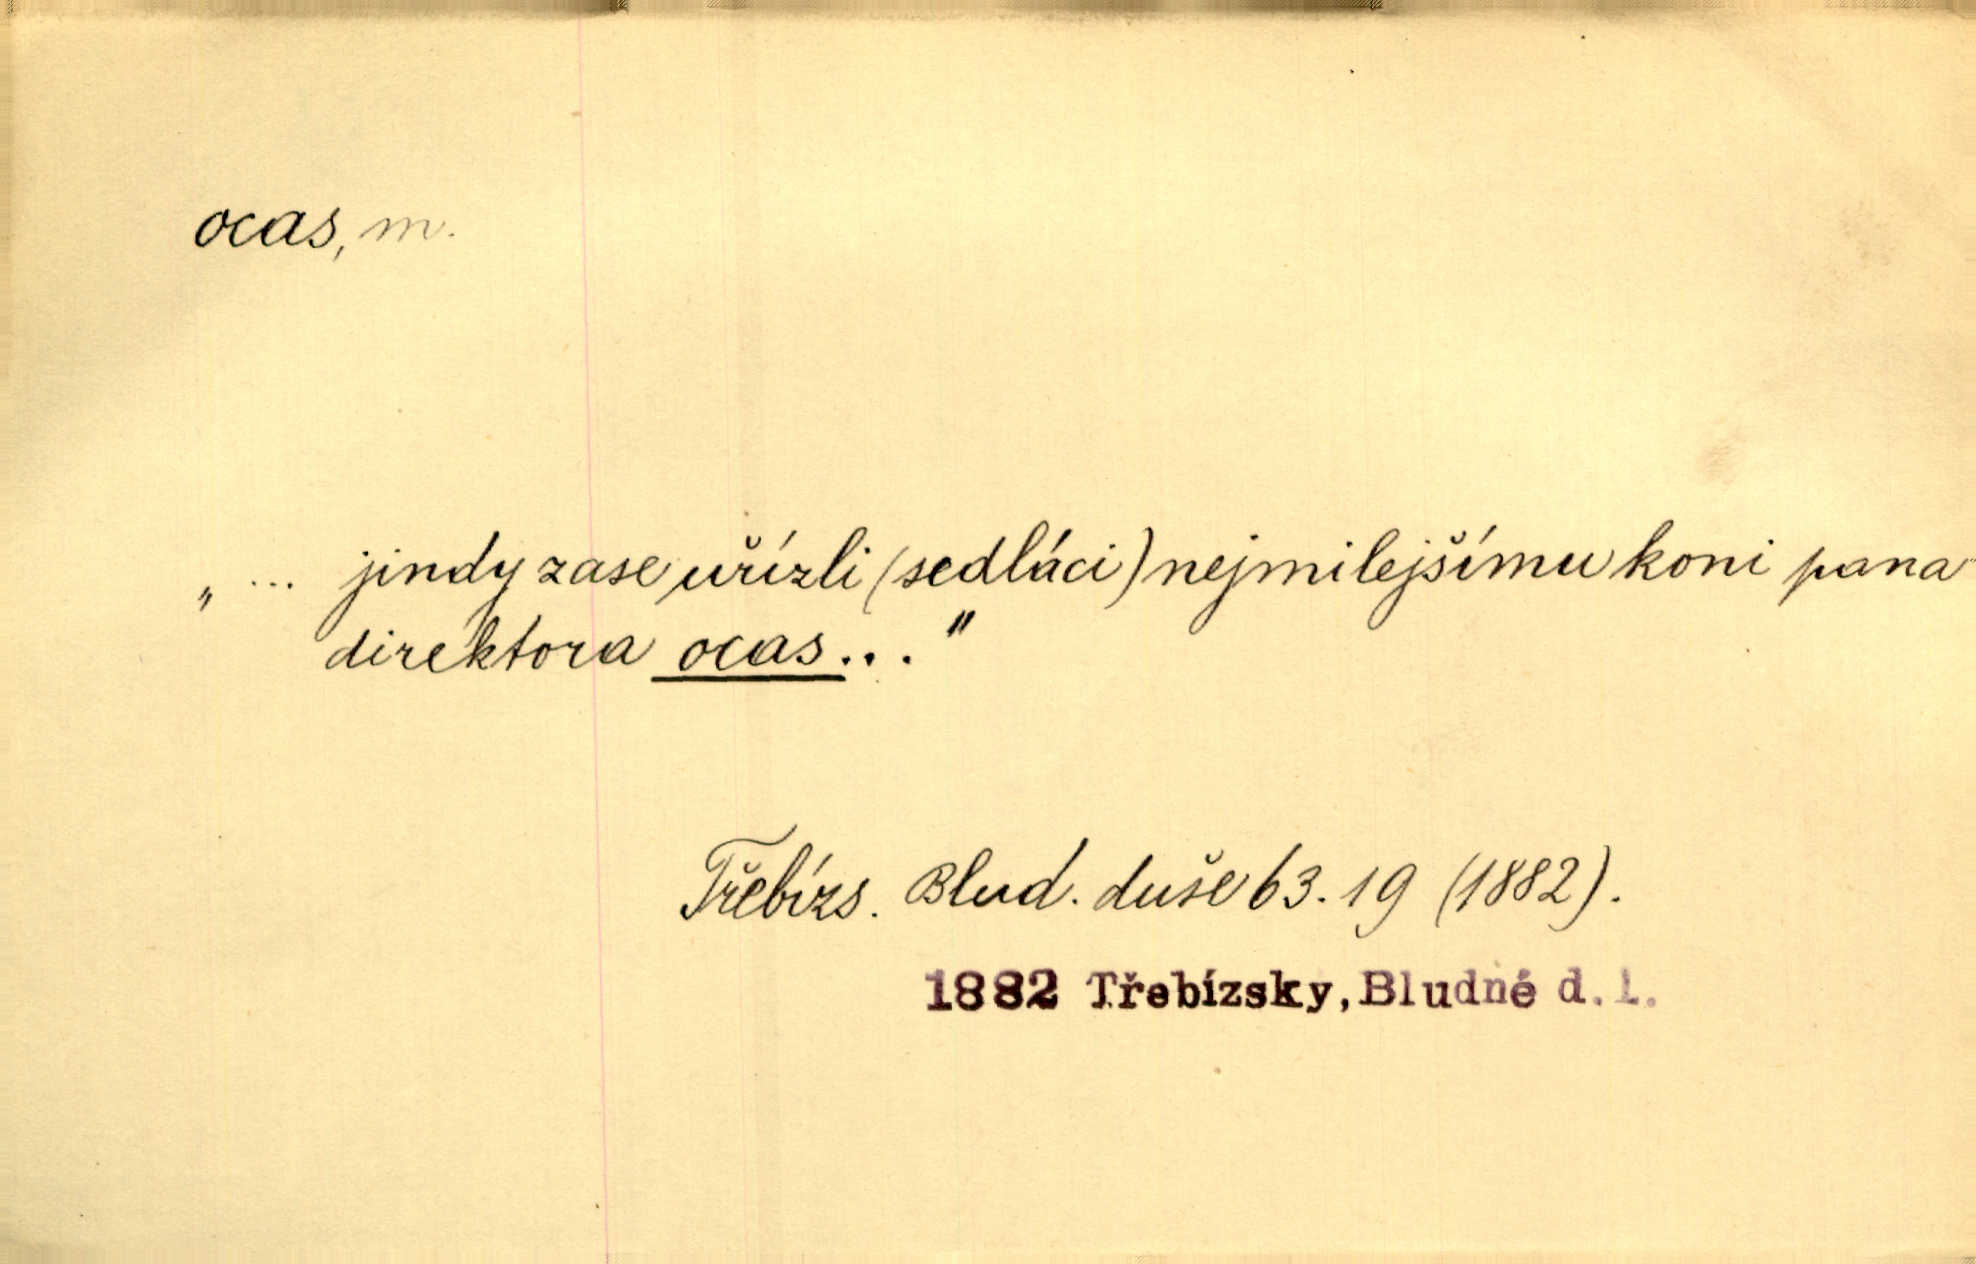 ocas, m.
„ ... jindy zase uřízli (sedláci) nejmilejšímu koni pana
direktora ocas... "
Třebízs. Blud. duše 63. 19 (1882).
1882 Třebízsky, Bludné d. 1.